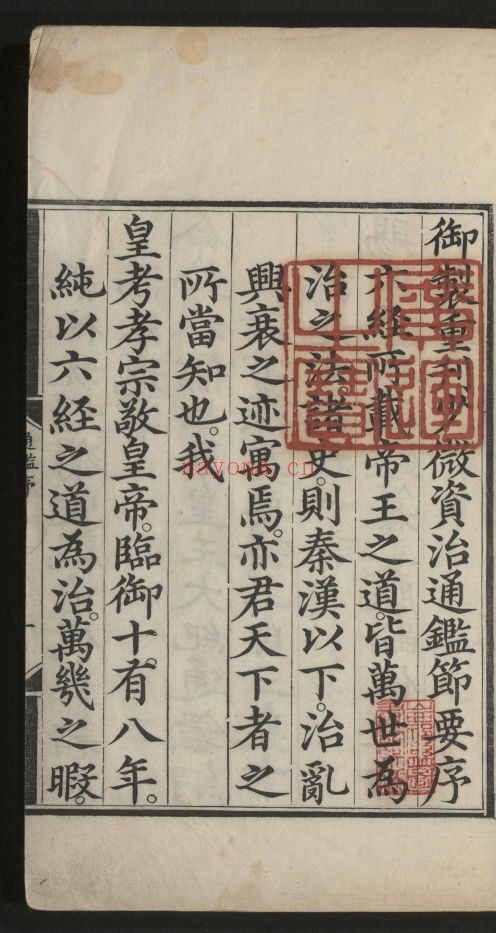 御製重刊少微資治通鑑節要序
六經所載帝王之道。皆萬世為
治之法諸史。則秦漢以下。治亂
興衰之迹寓焉。亦君天下者之
所當知也。我
皇考孝宗敬皇帝。臨御十有八年。
純以六経之道為治。萬幾之暇。
通鑑序
nayona.cn